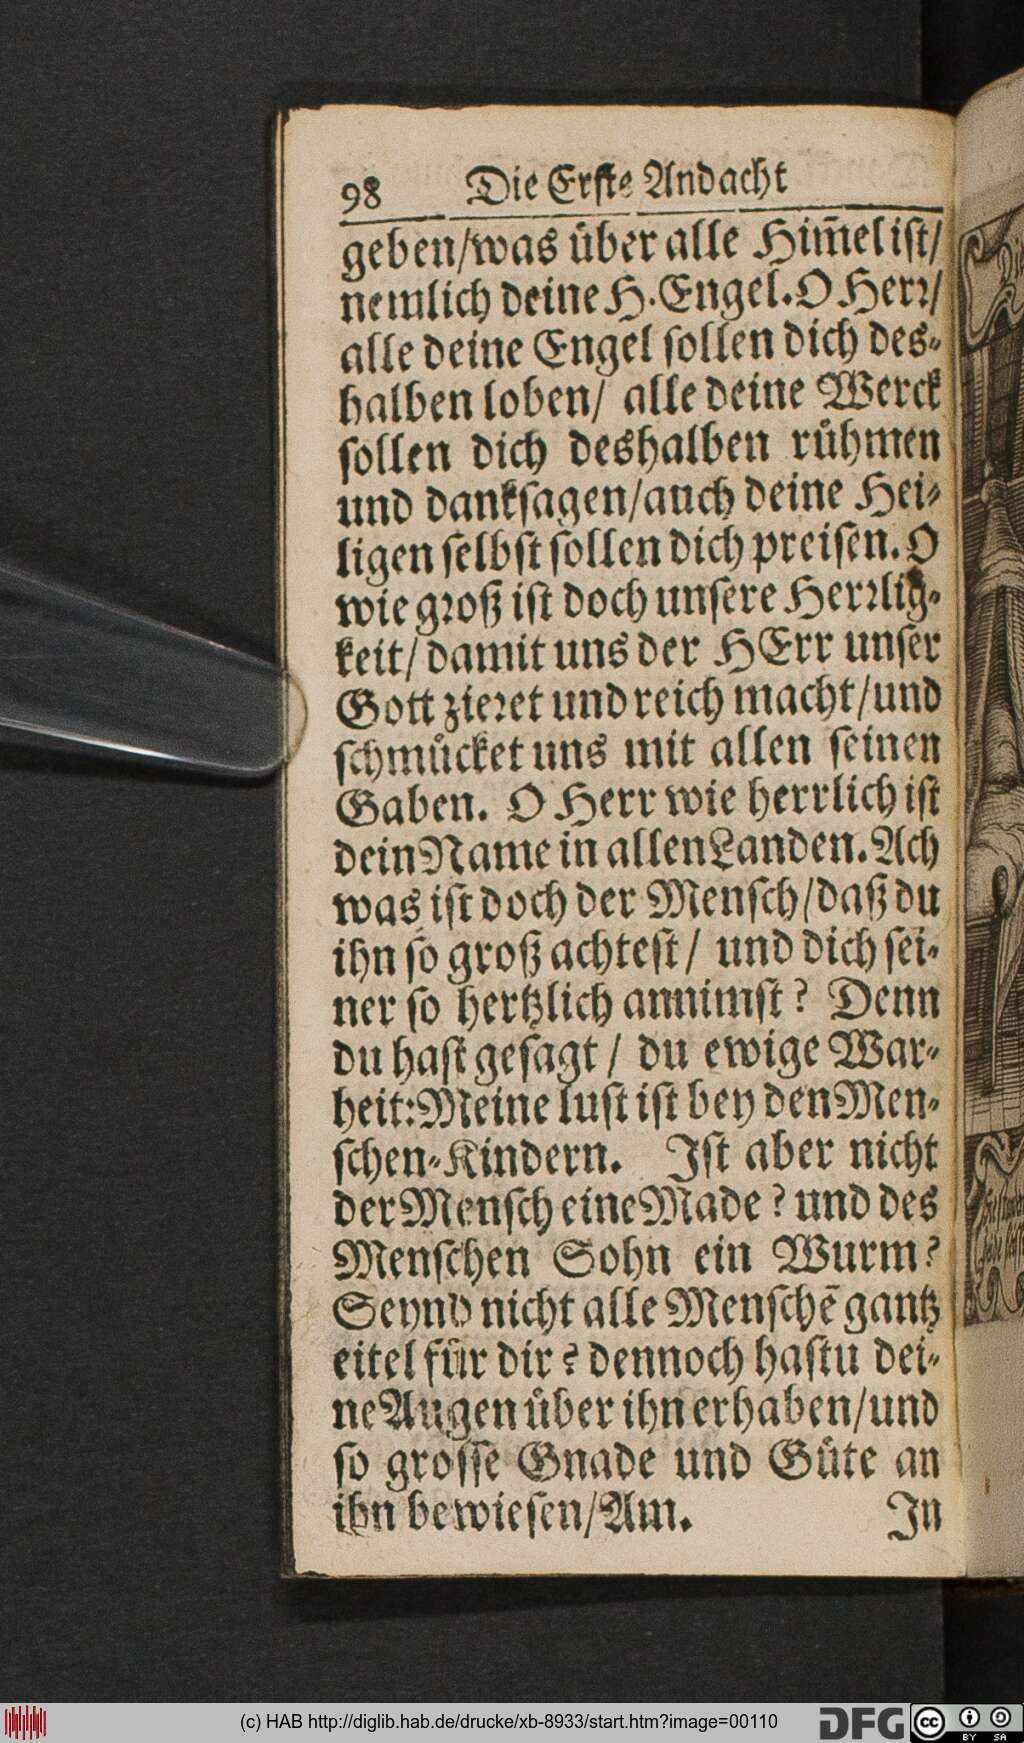 98 Die Erste Andacht
geben/was über alle Him̃el ist/
nemlich deine H. Engel. O Herr/
alle deine Engel sollen dich des-
halben loben/ alle deine Werck
sollen dich deshalben rühmen
und danksagen/auch deine Hei-
ligen selbst sollen dich preisen. O
wie groß ist doch unsere Herrlig-
keit/ damit uns der HErr unser
Gott zieret und reich macht/und
schmücket uns mit allen seinen
Gaben. O Herr wie herrlich ist
dein Name in allen Landen. Ach
was ist doch der Mensch/daß du
ihn so groß achtest/ und dich sei-
ner so hertzlich annimst? Denn
du hast gesagt/ du ewige War-
heit: Meine lust ist bey den Men-
schen-Kindern. Ist aber nicht
der Mensch eine Made? und des
Menschen Sohn ein Wurm?
Seynd nicht alle Menschē gantz
eitel für dir? dennoch hastu dei-
ne Augen über ihn erhaben/und
so grosse Gnade und Güte an
ihn bewiesen/Am.
In
(c) HAB http://diglib.hab.de/drucke/xb-8933/start.htm?image=00110
DFG
cc
BY SA